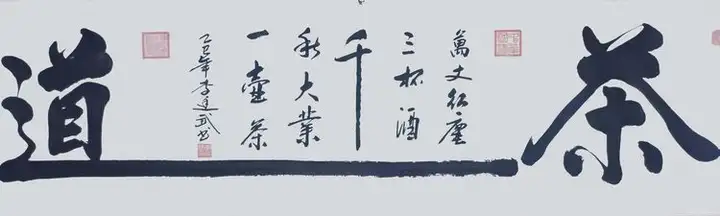 茶
萬丈紅塵
三杯酒
千
秋大業
一壺茶
道
乙巳年李逢武书